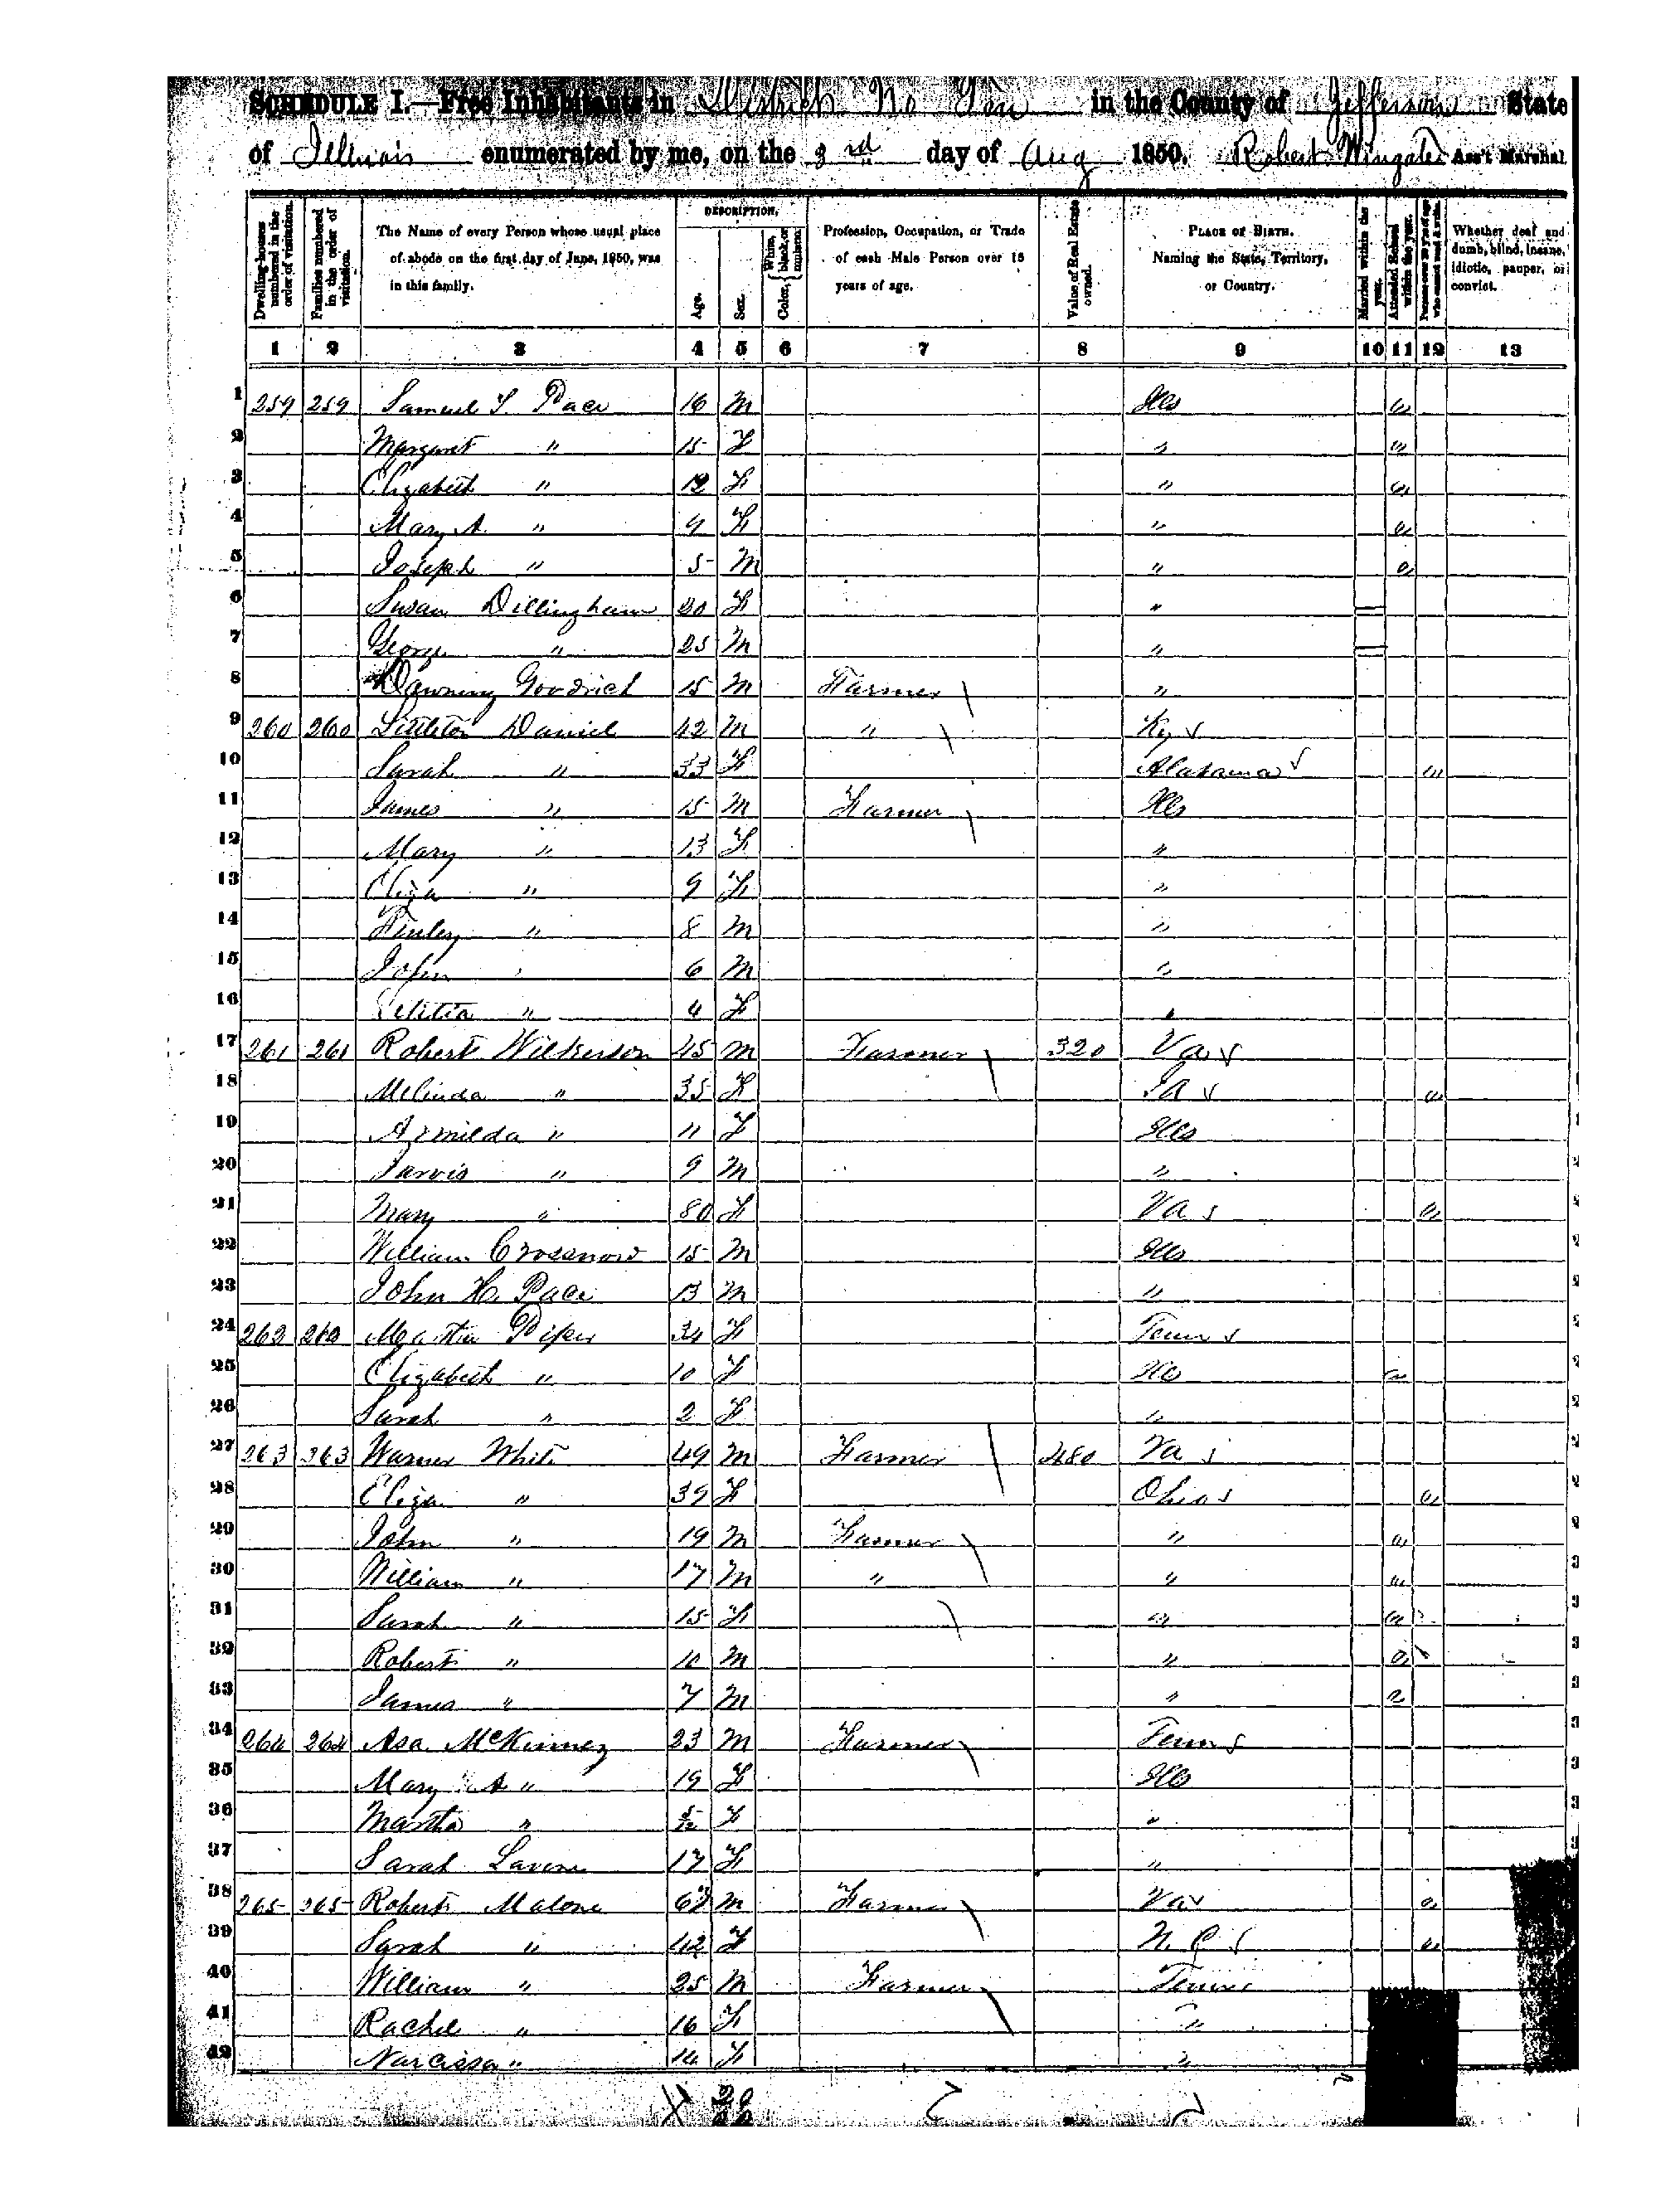 SCHEDULE I.—Free Inhabitants in District No Ten in the County of Jefferson State
of Illinois enumerated by me, on the 3rd day of Aug 1850. Robert Wingate Ass't Marshal
Dwelling-houses numbered in the order of visitation.
Families numbered in the order of visitation.
The Name of every Person whose usual place of abode on the first day of June, 1850, was in this family.
DESCRIPTION.
Age.
Sex.
Color, { White, black, or mulatto.
Profession, Occupation, or Trade of each Male Person over 15 years of age.
Value of Real Estate owned.
PLACE OF BIRTH. Naming the State, Territory, or Country.
Married within the year.
Attended School within the year.
Persons over 20 y'rs of age who cannot read & write.
Whether deaf and dumb, blind, insane, idiotic, pauper, or convict.
1 2 3 4 5 6 7 8 9 10 11 12 13
1 259 259 Samuel Pace 16 M Ills "
2 Margaret " 15 F " "
3 Elizabeth " 12 F " "
4 Mary A. " 9 F " "
5 Joseph " 5 M " "
6 Susan Dillingham 20 F "
7 George " 25 M "
8 Downing Goodrich 15 M Farmer "
9 260 260 Littleton Daniel 42 M " Ky
10 Sarah " 33 F Alabama "
11 James " 15 M Farmer Ills
12 Mary " 13 F "
13 Eliza " 9 F "
14 Finley " 8 M "
15 John " 6 M "
16 Letitia " 4 F "
17 261 261 Robert Wilkerson 45 M Farmer 320 Va
18 Melinda " 35 F "
19 Armilda " 11 F Ills
20 Jarvis " 9 M "
21 Mary " 80 F Va "
22 William Crosenow 15 M Ills
23 John H. Pace 13 M "
24 262 262 Piper 34 F Tenn
25 Elizabeth " 10 F Ills "
26 Sarah " 2 F "
27 263 263 Warner White 49 M Farmer 480 Va
28 Eliza " 39 F Ohio "
29 John " 19 M Farmer " "
30 William " 17 M " " "
31 Sarah " 15 F " "
32 Robert " 10 M " "
33 James " 7 M " "
34 264 264 Asa McKinney 23 M Farmer Tenn
35 Mary A " 19 F Ills
36 Martha " 5/12 F "
37 Sarah 17 F "
38 265 265 Robert Malone M Farmer Va "
39 Sarah " 42 F N. C "
40 William " 25 M Farmer Tenn
41 Rachel " 16 F "
42 Narcissa " 14 F "